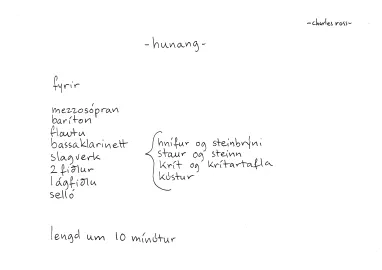 -charles ross-
-hunang-
fyrir
mezzosópran
baríton
flautu
bassaklarinett
slagverk
2 fiðlur
lágfiðlu
selló
hnífur og steinbrýni
staur og steinn
krít og krítartafla
kústur
lengd um 10 mínótur